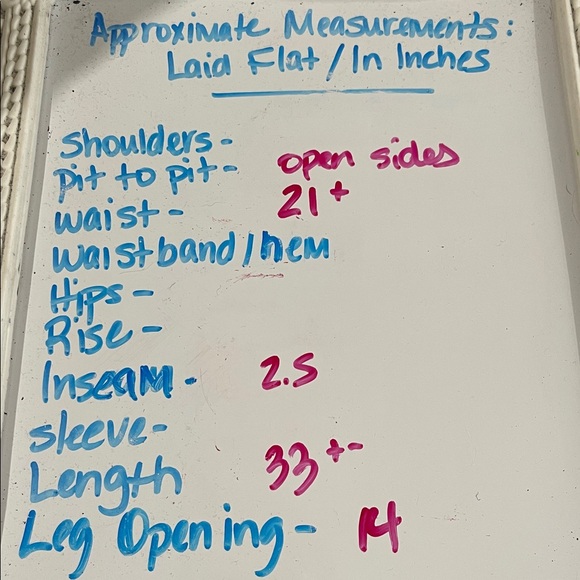 Approximate Measurements:
Laid Flat / In Inches
Shoulders -
pit to pit - open sides
waist - 21+
waistband / hem
Hips -
Rise -
Inseam - 2.5
sleeve -
Length 33 +-
Leg Opening - 14